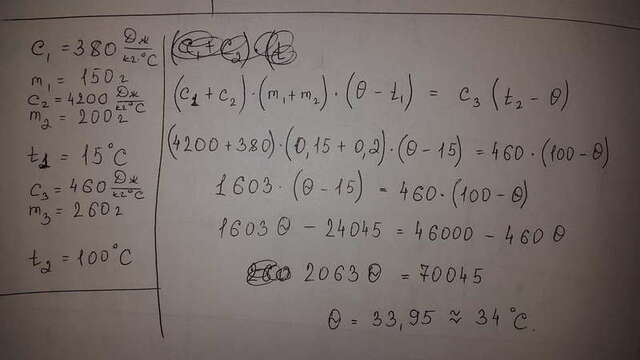 C₁ = 380 Дж/кг·°C
m₁ = 150 г
C₂ = 4200 Дж/кг·°C
m₂ = 200 г
t₁ = 15°C
C₃ = 460 Дж/кг·°C
m₃ = 260 г
t₂ = 100°C
(C₁ + C₂) · (m₁ + m₂) · (θ − t₁) = C₃ (t₂ − θ)
(4200 + 380) · (0,15 + 0,2) · (θ − 15) = 460 · (100 − θ)
1603 · (θ − 15) = 460 · (100 − θ)
1603 θ − 24045 = 46000 − 460 θ
2063 θ = 70045
θ = 33,95 ≈ 34°C.